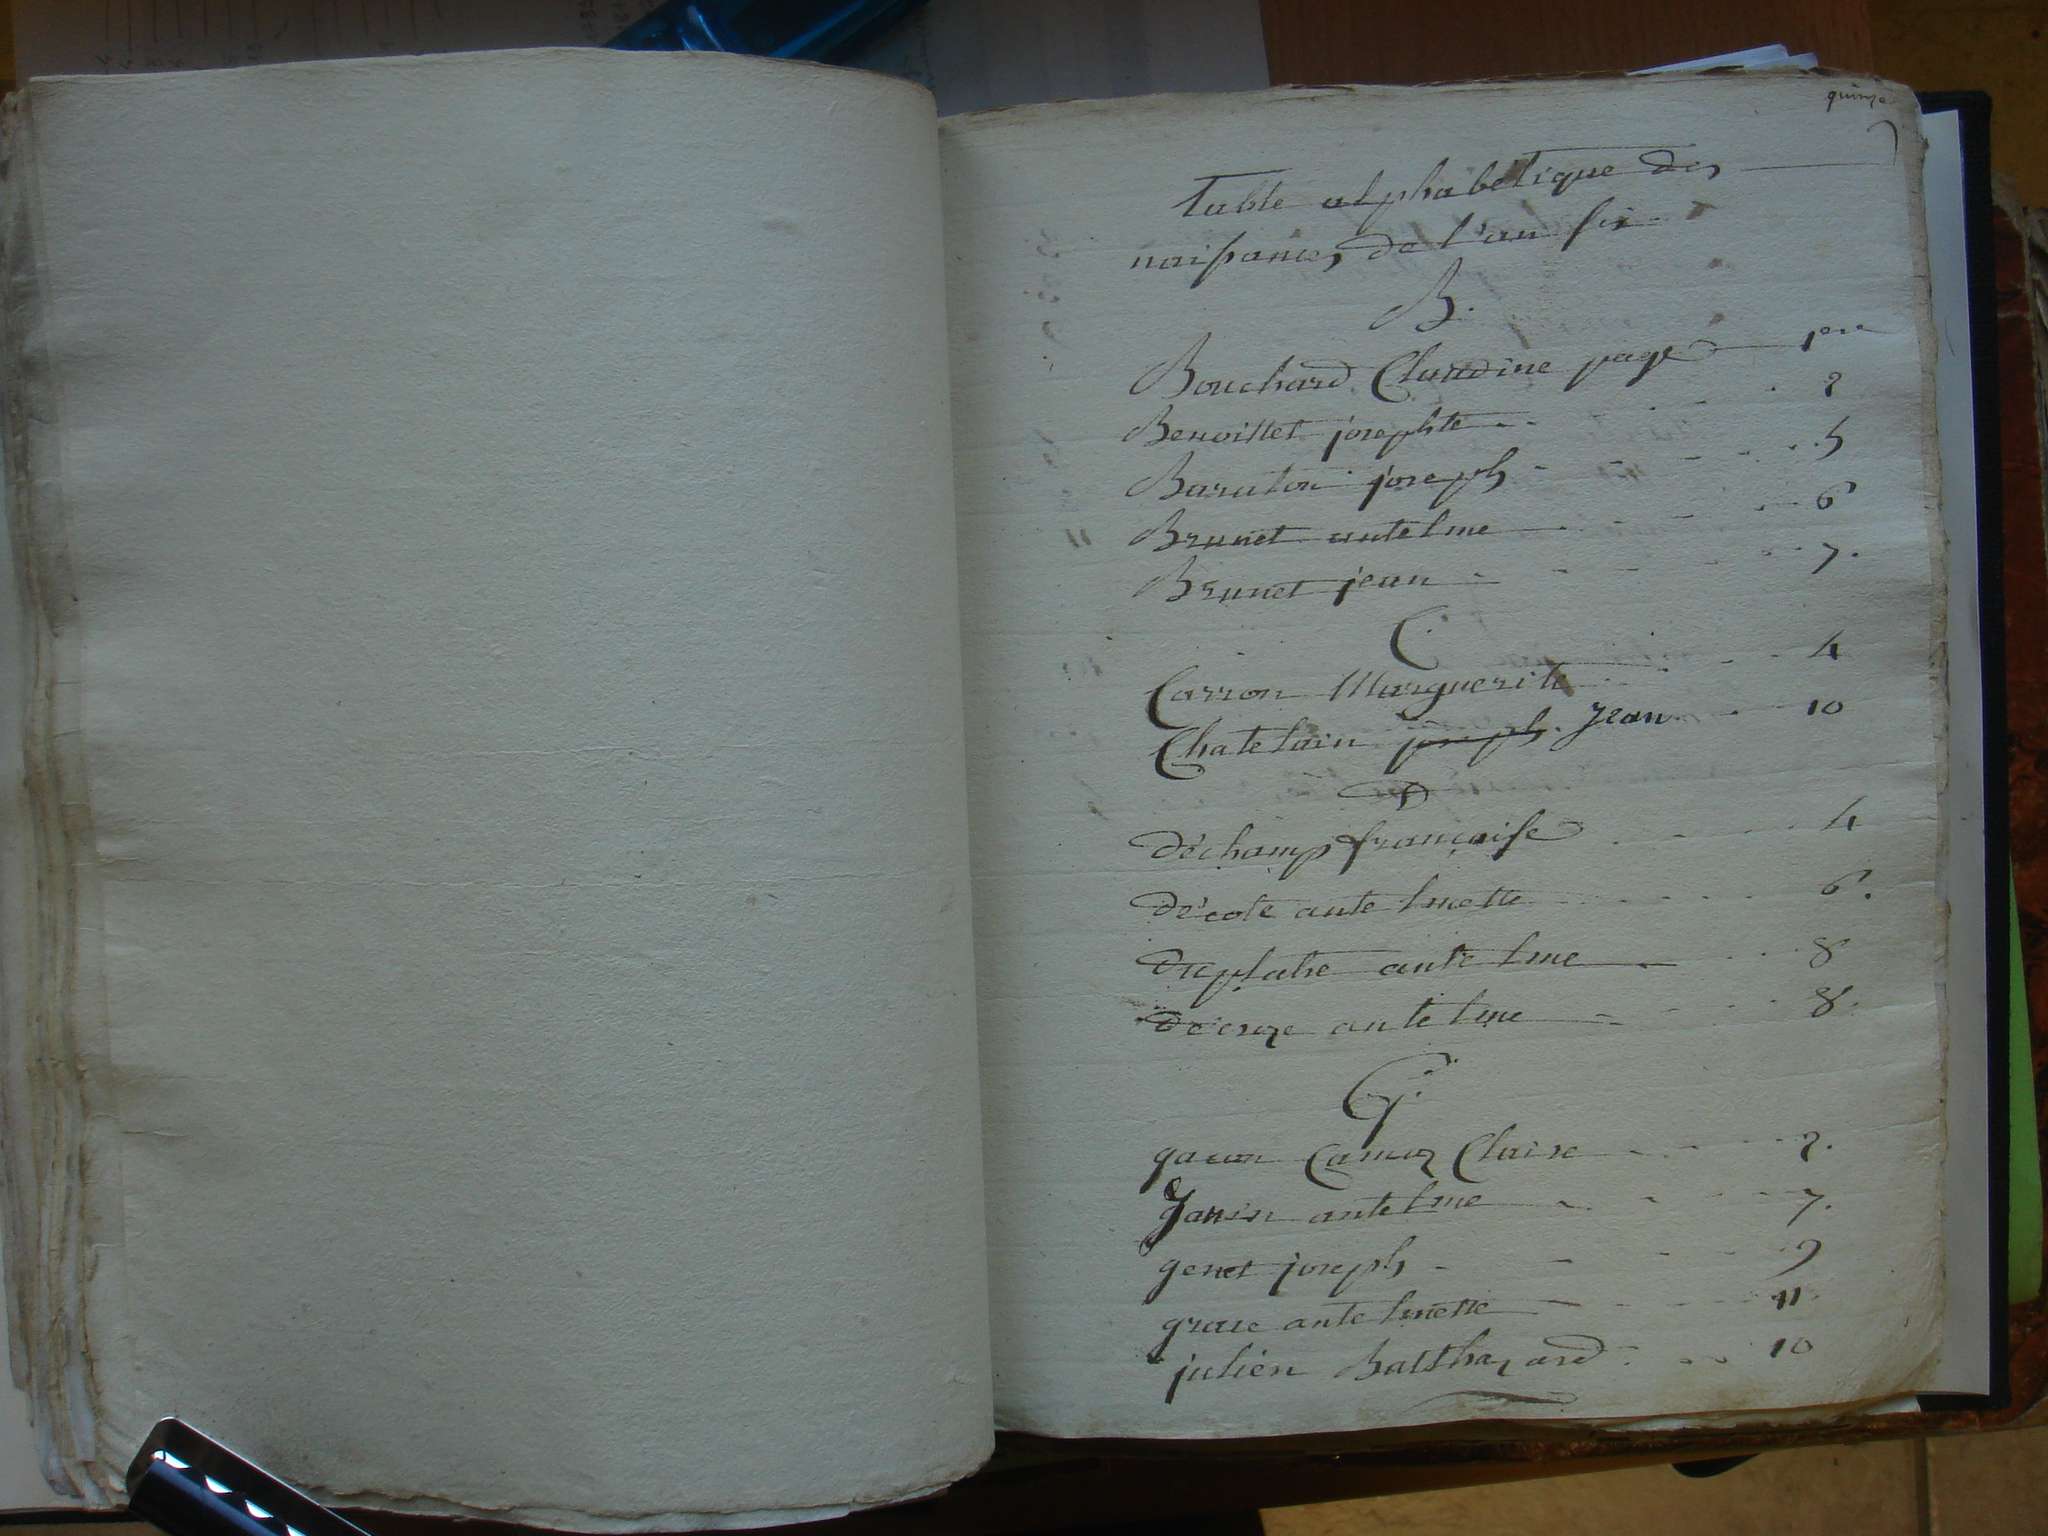 quinze
Table alphabetique des
naissances de l'an six
B.
Bouchard Claudine page 1ere
Benoillet josephte 2
Baraton joseph 5
Brunet antelme 6
Brunet jean 7.
C.
Carron Marguerite 4
Chatelain joseph. Jean 10
D
déchamp françoise 4
décote antelmette 6.
duplatre antelme 8
décroze antelme 8.
G.
gacon Camuz Claire 2.
Janin antelme 7.
genet joseph 9
antelmette 11
julien Balthazard 10